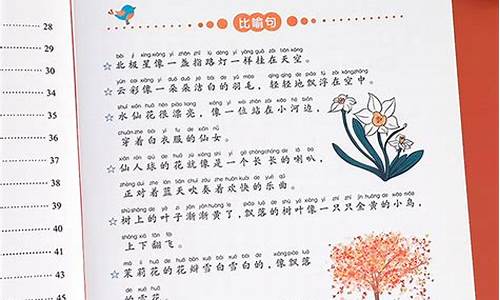 比喻句
28
30
34
35
36
37
39
40
41
45
běi jí xīng xiàng yì zhǎn zhǐ lù dēng yí yàng guà zài tiān kōng
☆北极星像一盏指路灯一样挂在天空。
yún cai xiàng yì duǒ duǒ jié bái de yǔ máo qīng qīng de piāo fú zài kōng zhōng
☆云彩像一朵朵洁白的羽毛，轻轻地飘浮在空中。
shuǐ xiān huā hěn piào liang xiàng yí wèi zhàn zài xiǎo hé biān
☆水仙花很漂亮，像一位站在小河边，
chuān zhe bái yī fu de xiān nǚ
穿着白衣服的仙女。
xiān rén qiú de huā jiù xiàng shì yí gè cháng cháng de lǎ ba
☆仙人球的花就像是一个长长的喇叭，
zhèng duì zhe lán tiān chuī zòu zhe huān kuài de yuè qǔ
正对着蓝天吹奏着欢快的乐曲。
shù shàng de yè zi jiàn jiàn huáng le piāo luò de shù yè xiàng yì zhī zhī jīn huáng de xiǎo niǎo
☆树上的叶子渐渐黄了，飘落的树叶像一只只金黄的小鸟，
shàng xià fān fēi
上下翻飞。
mò lì huā de huā bàn xuě bái xuě bái de xiàng piāo luò
☆茉莉花的花瓣雪白雪白的，像飘落
的雪花。